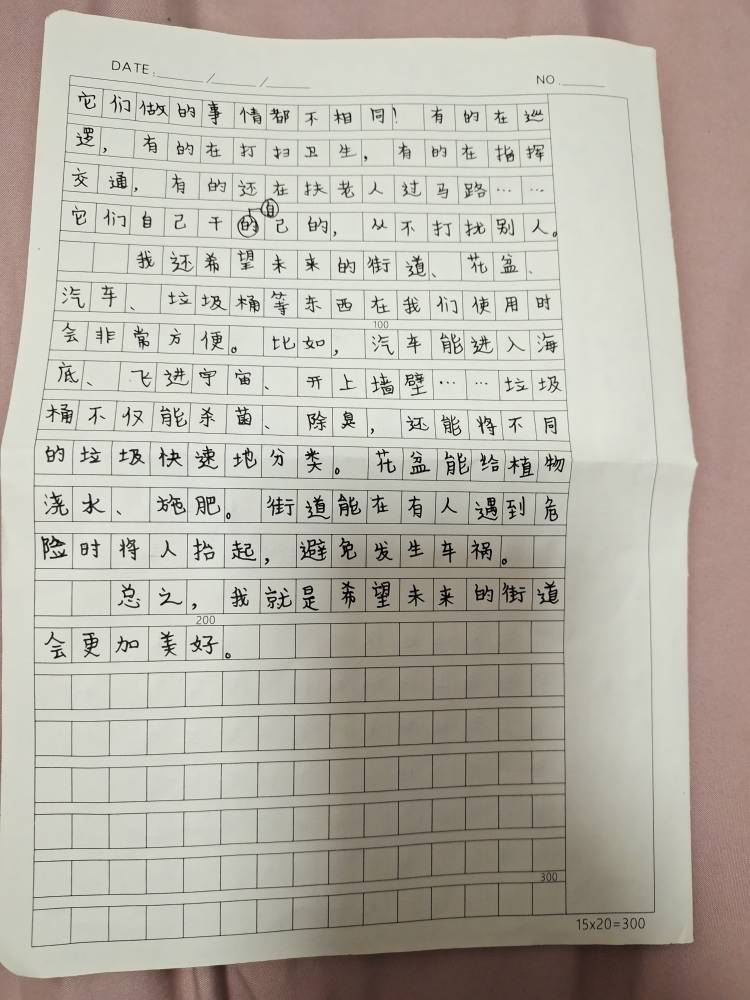 DATE:____/____/____
NO.____
它们做的事情都不相同！有的在巡
逻，有的在打扫卫生，有的在指挥
交通，有的还在扶老人过马路……
它们自己干自己的，从不打扰别人。
我还希望未来的街道、花盆、
汽车、垃圾桶等东西在我们使用时
100
会非常方便。比如，汽车能进入海
底、飞进宇宙、开上墙壁……垃圾
桶不仅能杀菌、除臭，还能将不同
的垃圾快速地分类。花盆能给植物
浇水、施肥。街道能在有人遇到危
险时将人抬起，避免发生车祸。
总之，我就是希望未来的街道
200
会更加美好。
300
15x20=300